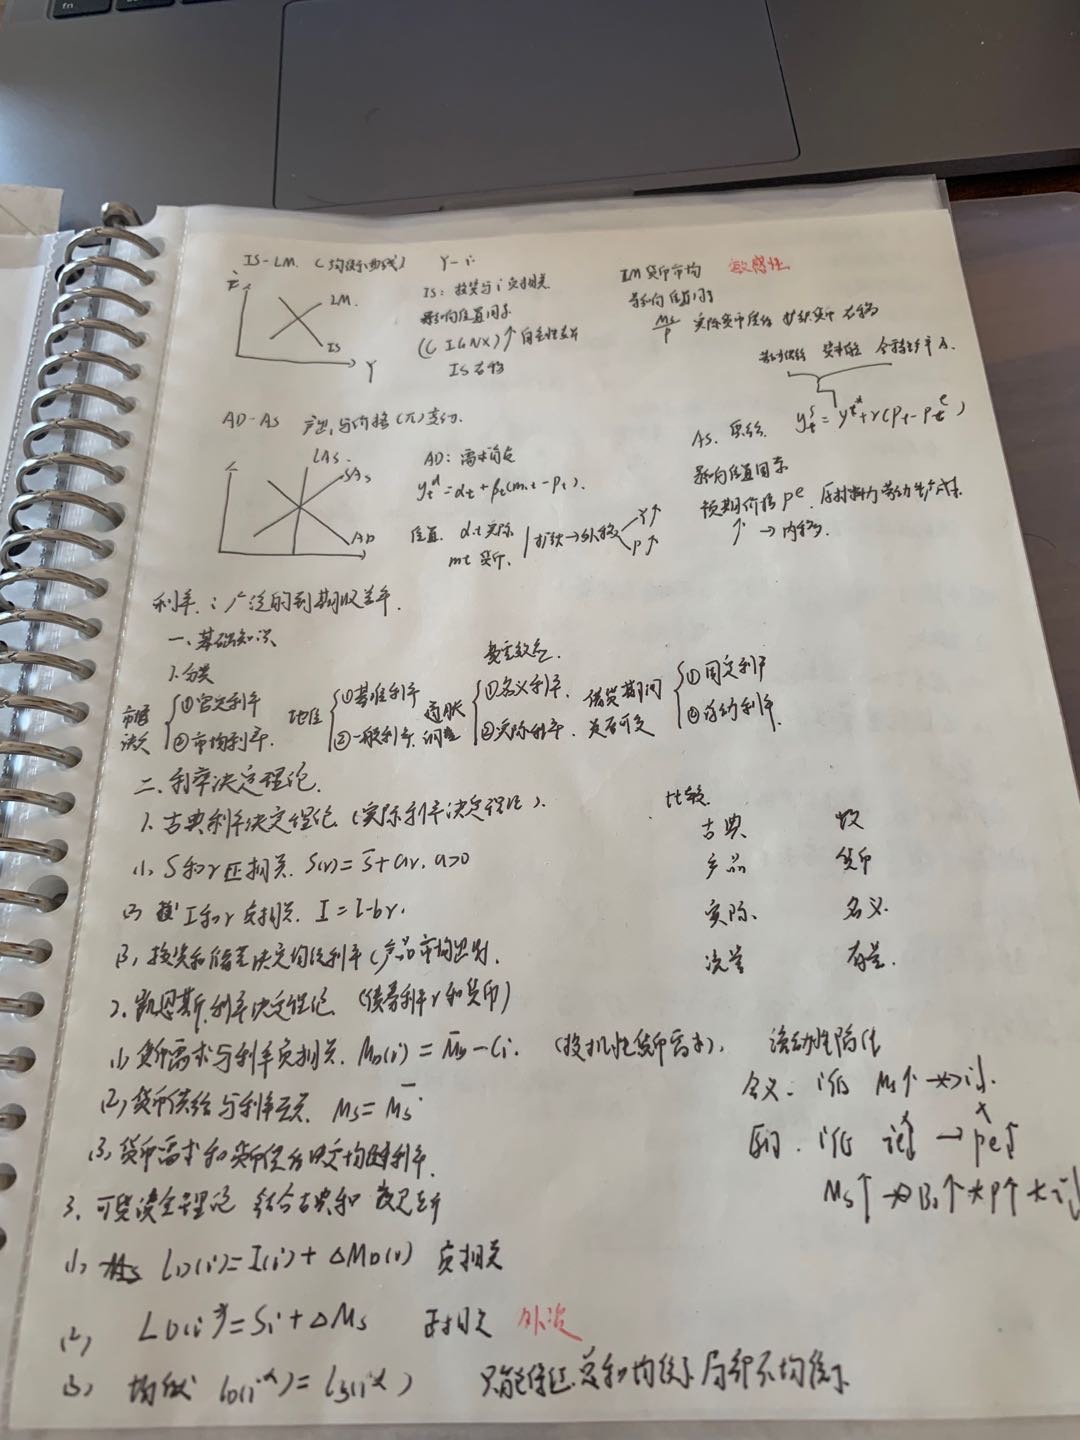 IS-LM (均衡曲线) Y-i
i
LM
IS
Y
IS: 投资与i负相关
影响位置因素
(C I G NX)↑ 自主性支出
IS右移
LM 货币市均 敏感性
影响位置因素
Ms/P 实际货币供给 扩张货币 右移
AD-AS 产出与价格(π)变动
LAS
SAS
AD
AD: 需求
ytd = αt + βt(mt - Pt).
位置. αt实际
mt 货币. 扩张→外移 Y↑
P↑
AS.
yts = yt* + r(Pt - Pte)
影响位置因素
预期价格 pe 原材料 劳动生产
↑ → 内移
利率: 广泛的到期收益率.
一、基础知识
1.分类
市场决定 ①官定利率 ②市场利率.
地位 ①基准利率 ②一般利率.
通胀调整 ①名义利率. ②实际利率.
费雪效应.
借贷期间是否可变 ①固定利率 ②浮动利率.
二、利率决定理论.
1.古典利率决定理论 (实际利率决定理论).
(1) S和r正相关. S(r) = S̄ + ar. a>0
(2) I和r负相关. I = Ī - br.
(3) 投资和储蓄决定均衡利率 (产品市场出发).
比较.
古典 凯
产品 货币
实际. 名义.
流量 存量.
2.凯恩斯.利率决定理论 (债券利率r和货币)
(1)货币需求与利率负相关. MD(i) = M̄D - Ci. (投机性货币需求). 流动性陷阱
(2)货币供给与利率无关. Ms = M̄s.
(3)货币需求和货币供给决定均衡利率.
含义. i低 Ms↑ ↛ i↓.
原因. i低 ie↓ → pe↑
Ms↑ ↛ BD↑ ↛ P↑ ↛ i↓
3.可贷资金理论 结合古典和凯恩斯
(1) LD(i) = I(i) + ΔMD(i) 负相关
(2) = Si + ΔMs 正相关 外汇
(3) 均衡 LD(i*) = Ls(i*) 只能保证总和均衡 局部不均衡